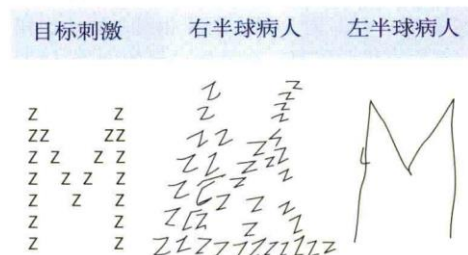 目标刺激 右半球病人 左半球病人
Z Z
ZZ ZZ
Z Z Z Z
Z Z Z Z
Z Z Z
Z Z
Z Z